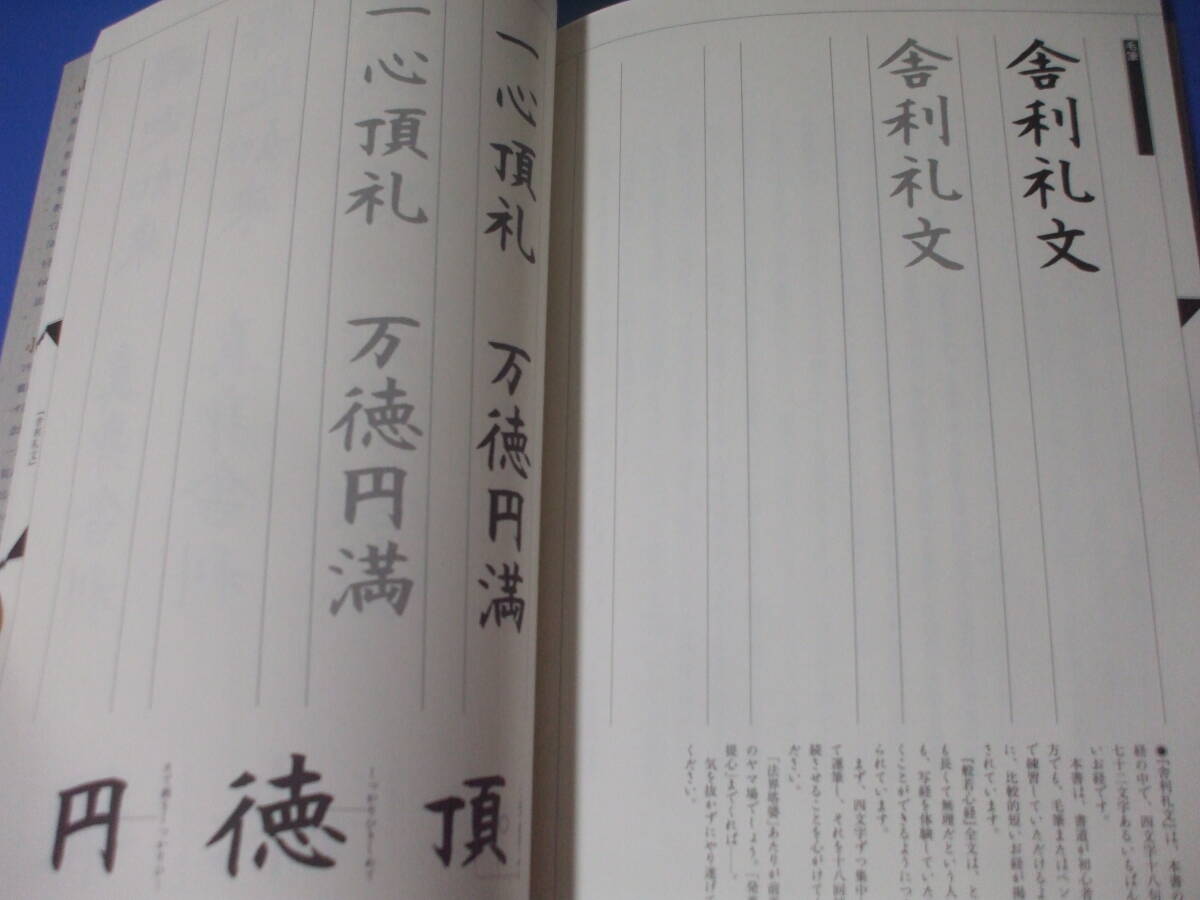 毛筆
舎利礼文
舎利礼文
●『舎利礼文』は、本書の
経の中で、四文字十八句
七十二文字あるいちばん
いお経です。
本書は、書道が初心者
方でも、毛筆またはペン
で練習していただけるよ
に、比較的短いお経が掲
されています。
『般若心経』全文は、と
も長くて無理だという人
も、写経を体験していた
くことができるようにつ
られています。
まず、四文字ずつ集中
て運筆し、それを十八回
続させることを心がけて
ださい。
「法界塔婆」あたりが前
のヤマ場でしょう。「発
提心」までくれば――。
気を抜かずにやり遂げて
ください。
一心頂礼 万徳円満
一心頂礼 万徳円満
頂
徳
円